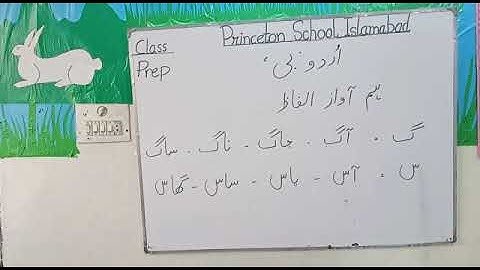 Class
Prep
Princeton School, Islamabad
اُردو بی
ہم آواز الفاظ
گ - آگ - جاگ - ناگ - ساگ
س - آس - پاس - ساس - گھاس